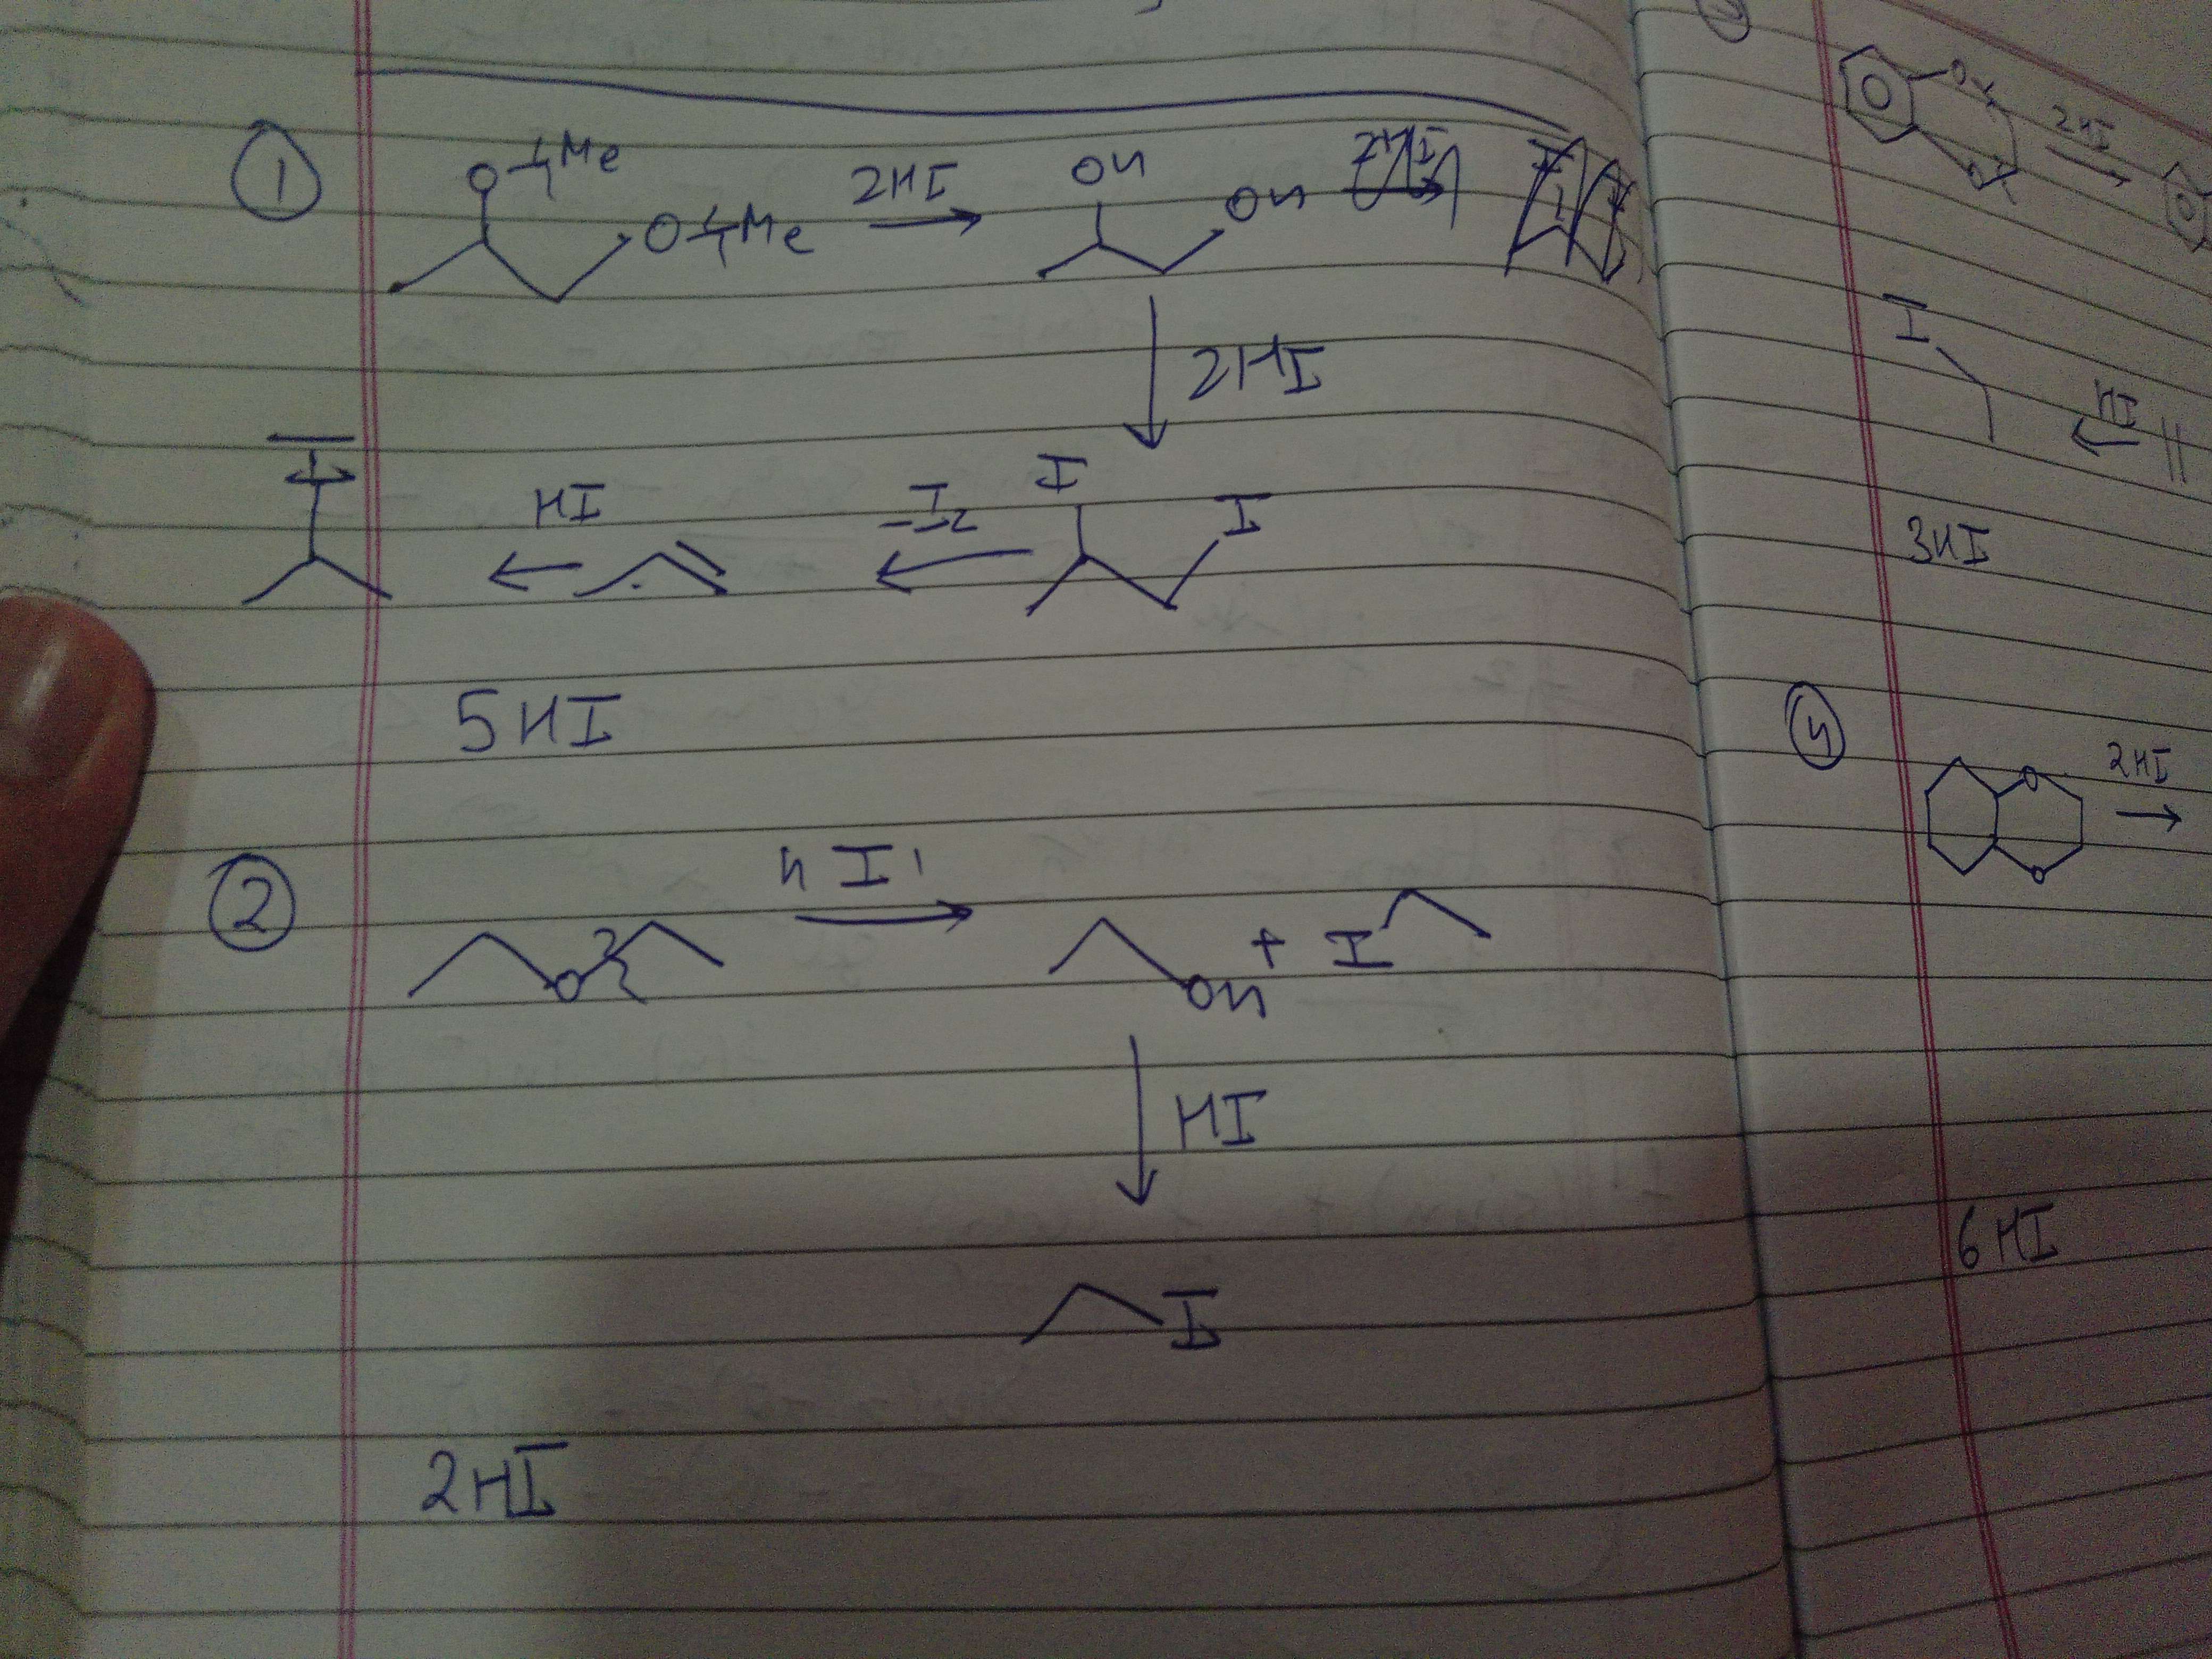 1
O Me
O Me
2HI
OH
OH
2HI
I
I
-I2
HI
I
5HI
2
O
HI
OH + I
HI
I
2HI
O
O
2HI
I
HI
3HI
4
O
O
2HI
6HI